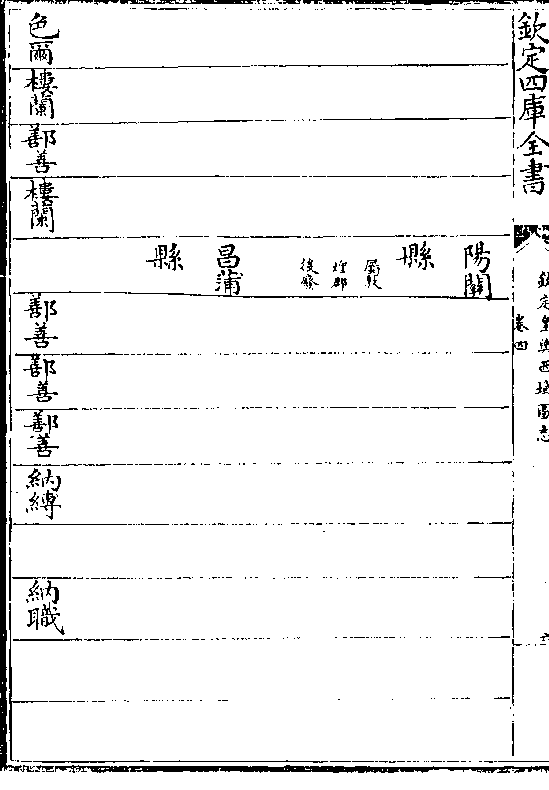 欽定四庫全書
欽定皇輿西域圖志
卷四
陽關
縣
屬敦
煌郡
後廢
昌蒲
縣
色爾
樓蘭
鄯善
樓蘭
鄯善
鄯善
鄯善
納縛
納職